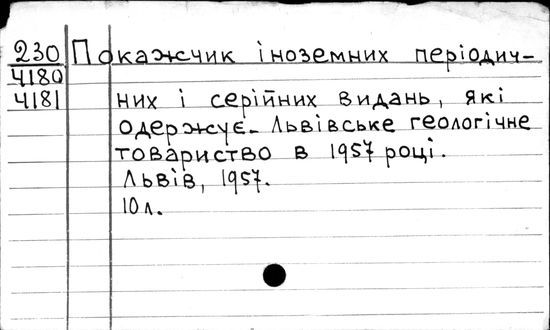 230 Покажчик іноземних періодич-
4180
4181 них і серійних видань, які
одержує Львівське геологічне
товариство в 1957 році.
Львів, 1957.
10 л.